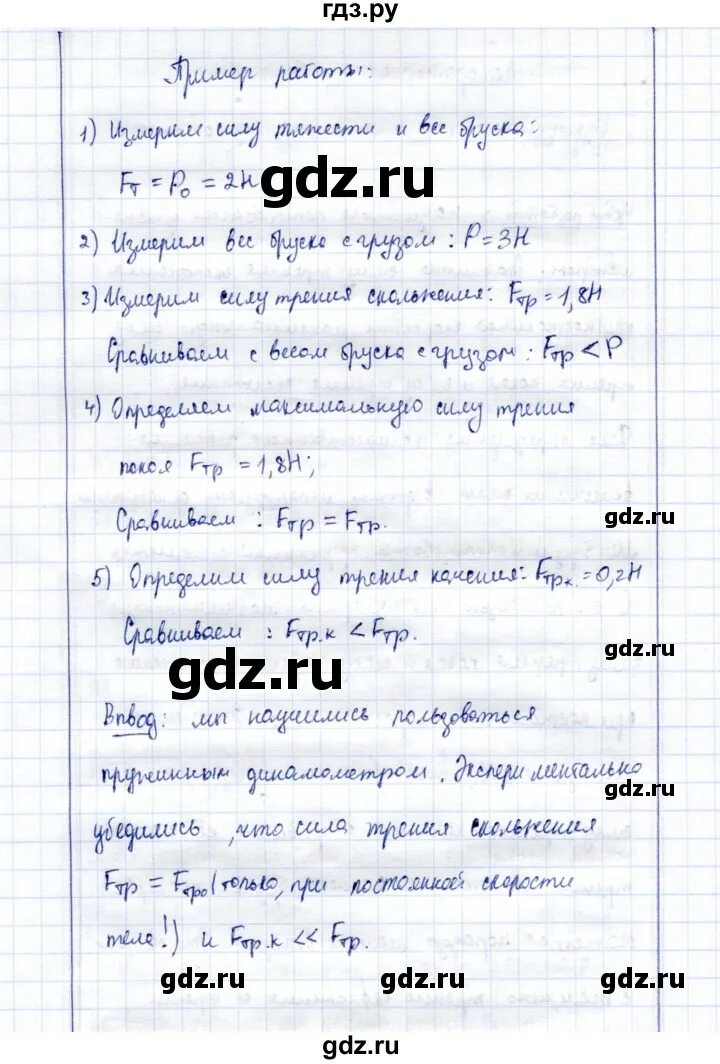 гдз.ру
Пример работы:
1) Измерим силу тяжести и вес бруска:
Fт = P₀ = 2Н
gdz.ru
2) Измерим вес бруска с грузом : P = 3Н
3) Измерим силу трения скольжения: Fтр = 1,8Н
Сравниваем с весом бруска с грузом : Fтр < P
4) Определяем максимальную силу трения
покоя Fтр = 1,8Н;
Сравниваем : Fтр = Fтр.
gdz.ru
5) Определим силу трения качения: Fтр.к. = 0,2Н
Сравниваем : Fтр.к < Fтр.
gdz.ru
gdz.ru
Вывод: мы научились пользоваться
пружинным динамометром. Экспериментально
gdz.ru
убедились, что сила трения скольжения
Fтр = Fтр₀ (только, при постоянной скорости
тела!) и Fтр.к << Fтр.
gdz.ru
gdz.ru
gdz.ru
gdz.ru